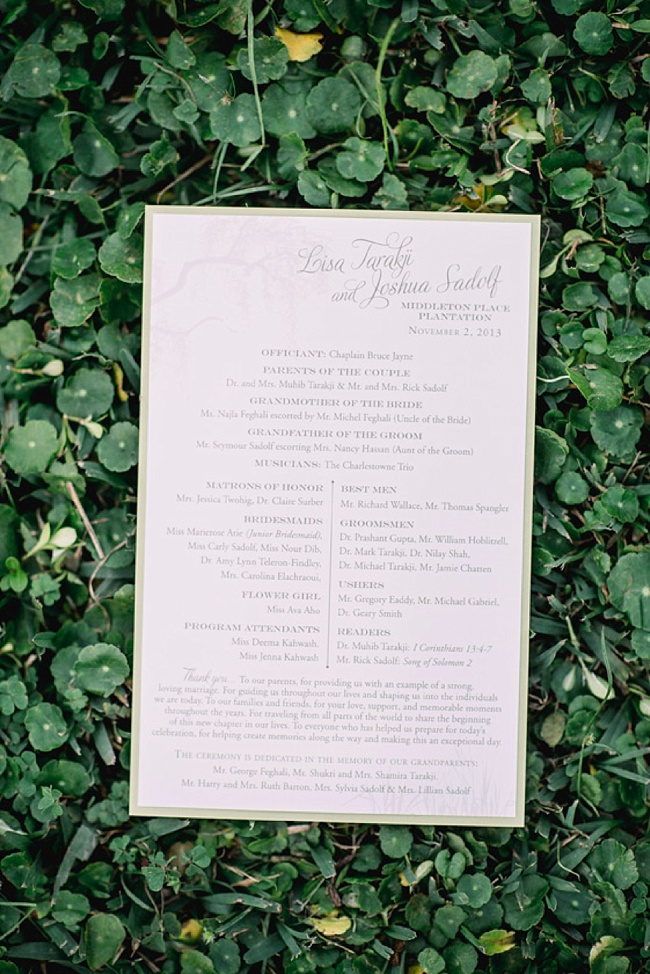 Lisa Tarakji
and Joshua Sadolf
MIDDLETON PLACE
PLANTATION
NOVEMBER 2, 2013
OFFICIANT: Chaplain Bruce Jayne
PARENTS OF THE COUPLE
Dr. and Mrs. Muhib Tarakji & Mr. and Mrs. Rick Sadolf
GRANDMOTHER OF THE BRIDE
Ms. Najla Feghali escorted by Mr. Michel Feghali (Uncle of the Bride)
GRANDFATHER OF THE GROOM
Mr. Seymour Sadolf escorting Mrs. Nancy Hassan (Aunt of the Groom)
MUSICIANS: The Charlestowne Trio
MATRONS OF HONOR
Mrs. Jessica Twohig, Dr. Claire Surber
BRIDESMAIDS
Miss Marierose Atie (Junior Bridesmaid),
Miss Carly Sadolf, Miss Nour Dib,
Dr. Amy Lynn Teleron-Findley,
Mrs. Carolina Elachraoui,
FLOWER GIRL
Miss Ava Aho
PROGRAM ATTENDANTS
Miss Deema Kahwash,
Miss Jenna Kahwash
BEST MEN
Mr. Richard Wallace, Mr. Thomas Spangler
GROOMSMEN
Dr. Prashant Gupta, Mr. William Hoblitzell,
Dr. Mark Tarakji, Dr. Nilay Shah,
Dr. Michael Tarakji, Mr. Jamie Chatten
USHERS
Mr. Gregory Eaddy, Mr. Michael Gabriel,
Dr. Geary Smith
READERS
Dr. Muhib Tarakji: I Corinthians 13:4-7
Mr. Rick Sadolf: Song of Solomon 2
Thank you... To our parents, for providing us with an example of a strong,
loving marriage. For guiding us throughout our lives and shaping us into the individuals
we are today. To our families and friends, for your love, support, and memorable moments
throughout the years. For traveling from all parts of the world to share the beginning
of this new chapter in our lives. To everyone who has helped us prepare for today's
celebration, for helping create memories along the way and making this an exceptional day.
THE CEREMONY IS DEDICATED IN THE MEMORY OF OUR GRANDPARENTS:
Mr. George Feghali, Mr. Shukri and Mrs. Shamira Tarakji,
Mr. Harry and Mrs. Ruth Barron, Mrs. Sylvia Sadolf & Mrs. Lillian Sadolf